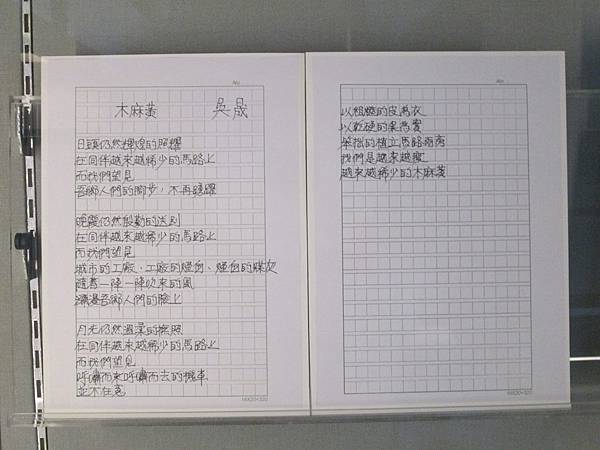 No.
木麻黃　吳晟
日頭仍然輝煌的照耀
在同伴越來越稀少的馬路上
而我們望見
吾鄉人們的腳步，不再踴躍
晚霞仍然殷勤的送別
在同伴越來越稀少的馬路上
而我們望見
城市的工廠、工廠的煙囪、煙囪的煤灰
隨著一陣一陣吹來的風
瀰漫吾鄉人們的臉上
月光仍然溫柔的撫照
在同伴越來越稀少的馬路上
而我們望見
呼嘯而來呼嘯而去的機車
並不在意
No.
以粗糙的皮為衣
以乾硬的果為實
笨拙的植立馬路兩旁
我們是越來越瘦
越來越稀少的木麻黃